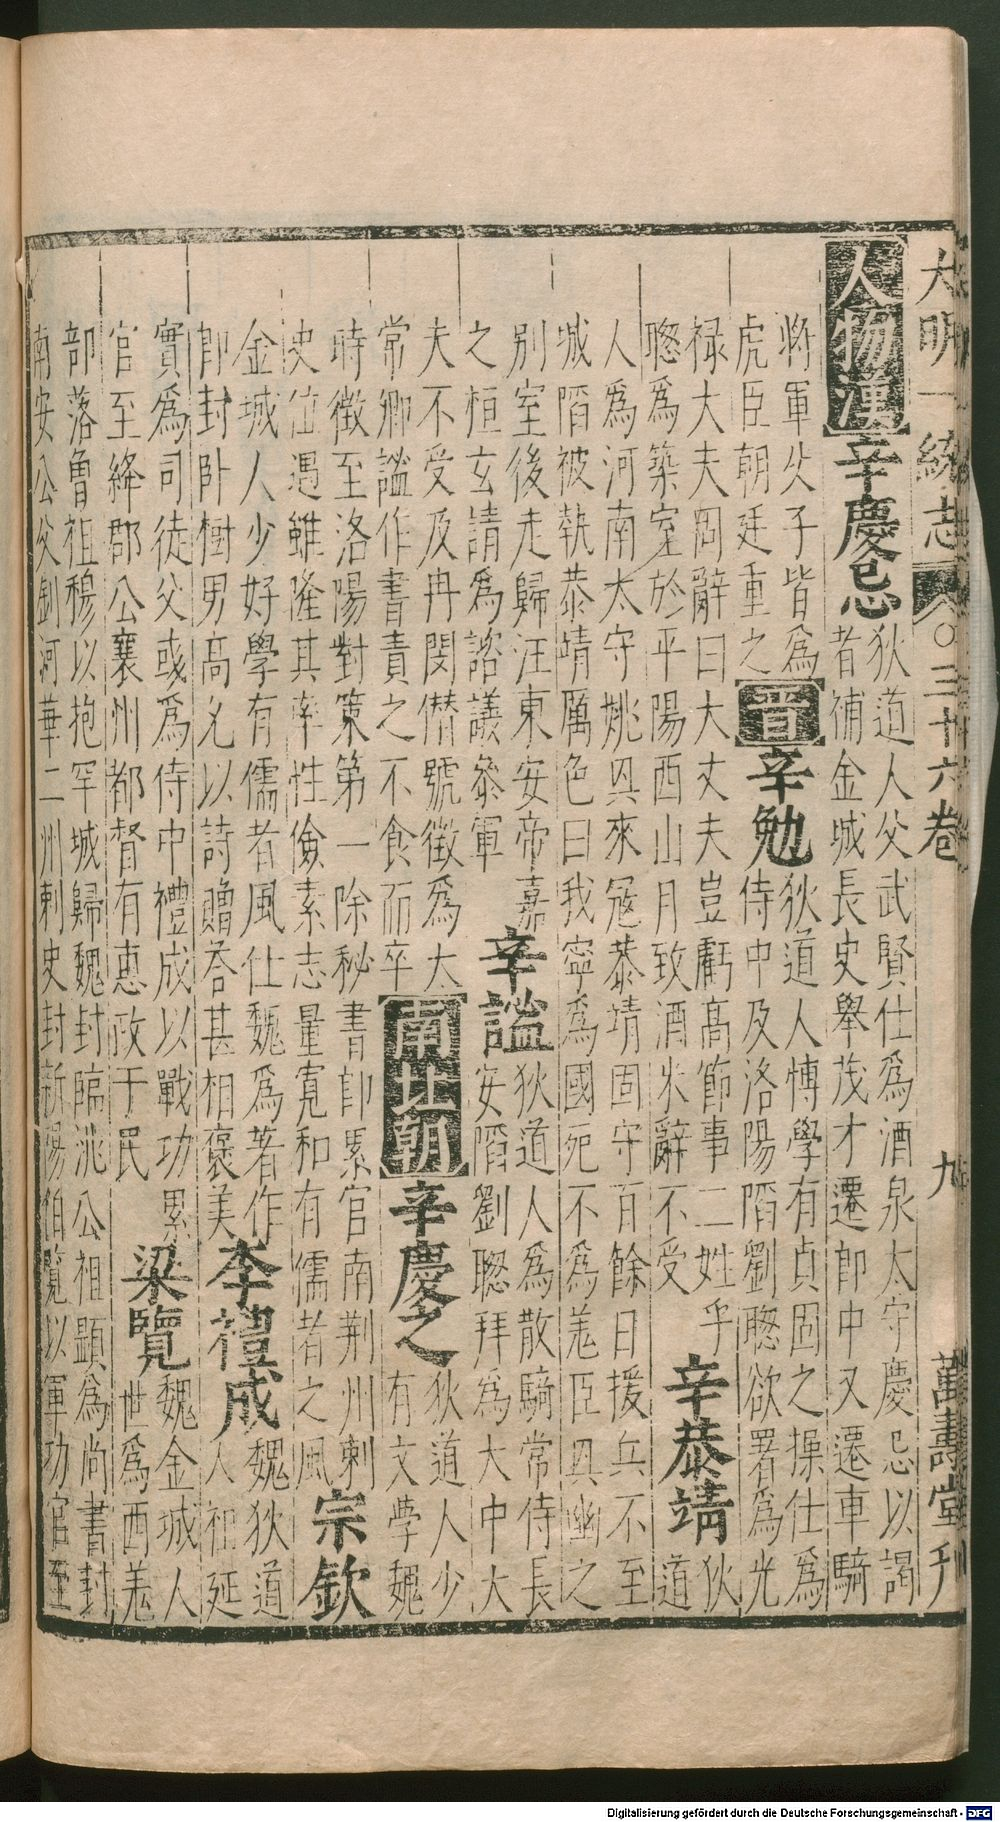 大明一統志 ○三十六卷 九 萬壽堂刊
人物漢辛慶忌
狄道人父武賢仕爲酒泉太守慶忌以謁
者補金城長史舉茂才遷郎中又遷車騎
將軍父子皆爲
虎臣朝廷重之
晋辛勉
狄道人博學有貞固之操仕爲
侍中及洛陽陷劉聦欲署爲光
禄大夫固辭曰大丈夫豈虧高節事二姓乎
聦爲築室於平陽西山月致酒米辭不受
辛恭靖
狄
道
人爲河南太守姚具來冦恭靖固守百餘日援兵不至
城陷被執恭靖厲色曰我寧爲國死不爲羌臣具幽之
别室後走歸江東安帝嘉
之桓玄請爲諮議叅軍
辛謐
狄道人爲散騎常侍長
安陷劉聦拜爲大中大
夫不受及冉閔僭號徵爲太
常卿謐作書責之不食而卒
南北朝辛慶之
狄道人少
有文學魏
時徵至洛陽對策第一除秘書郎累官南荆州刺
史位遇雖隆其率性儉素志量寛和有儒者之風
宗欽
金城人少好學有儒者風仕魏爲著作
郎封卧樹男高允以詩贈荅甚相褒美
李禮成
魏狄道
人祖延
實爲司徒父彧爲侍中禮成以戰功累
官至絳郡公襄州都督有恵政于民
梁覽
魏金城人
世爲西羌
部落魯祖穆以抱罕城歸魏封臨洮公祖顯爲尚書封
南安公父釗河華二州刺史封新陽伯覽以軍功官至
Digitalisierung gefördert durch die Deutsche Forschungsgemeinschaft - DFG